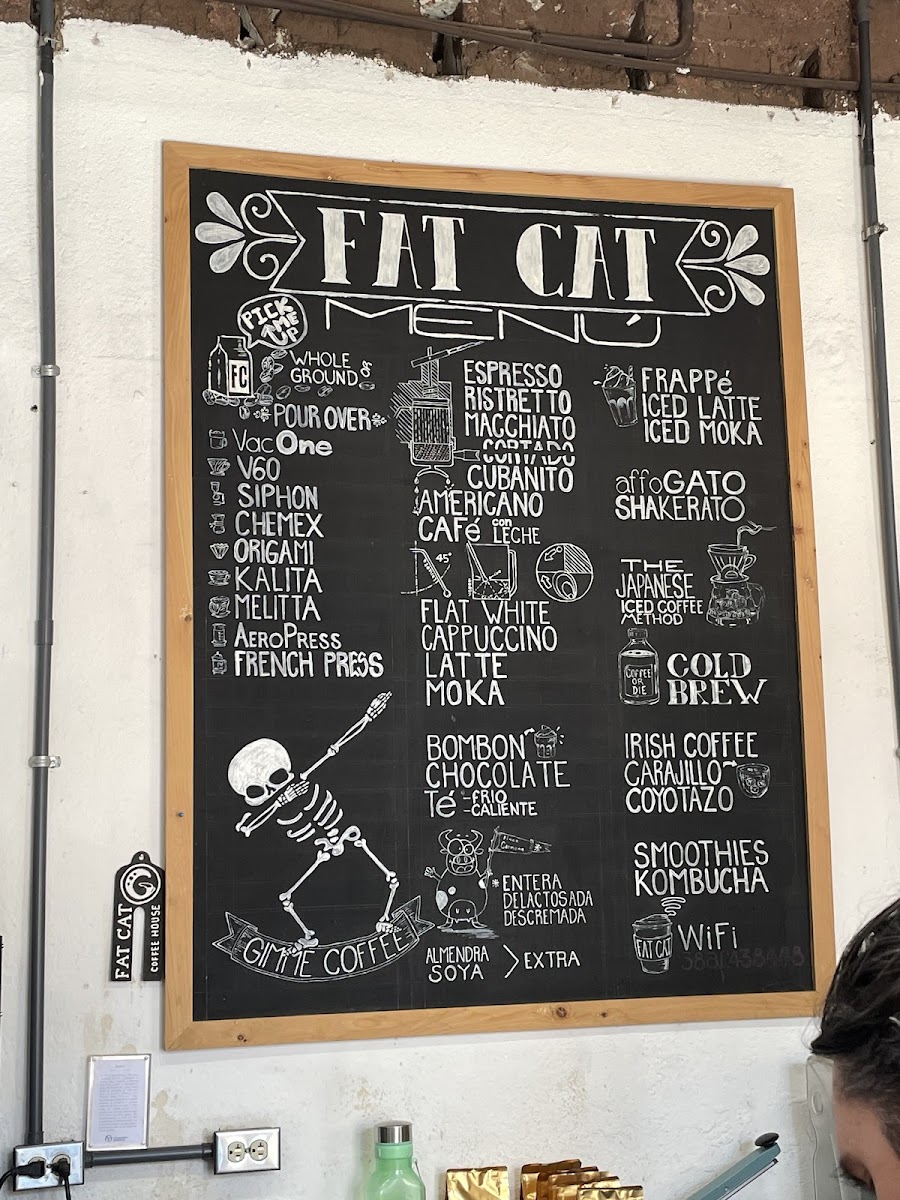 FAT CAT
MENÚ
PICK
ME
UP
FC
WHOLE
GROUND
POUR OVER
VacOne
V60
SIPHON
CHEMEX
ORIGAMI
KALITA
MELITTA
AEROPRESS
FRENCH PRESS
GIMME COFFEE!
ESPRESSO
RISTRETTO
MACCHIATO
CORTADO
CUBANITO
AMERICANO
CAFé con LECHE
45°
FLAT WHITE
CAPPUCCINO
LATTE
MOKA
BOMBON
CHOCOLATE
Té -FRIO
-CALIENTE
*ENTERA
DELACTOSADA
DESCREMADA
ALMENDRA
SOYA > EXTRA
FRAPPé
ICED LATTE
ICED MOKA
affoGATO
SHAKERATO
THE
JAPANESE
ICED COFFEE
METHOD
COFFEE
OR
DIE
COLD
BREW
IRISH COFFEE
CARAJILLO
COYOTAZO
SMOOTHIES
KOMBUCHA
FAT CAT
WiFi
FAT CAT
COFFEE HOUSE